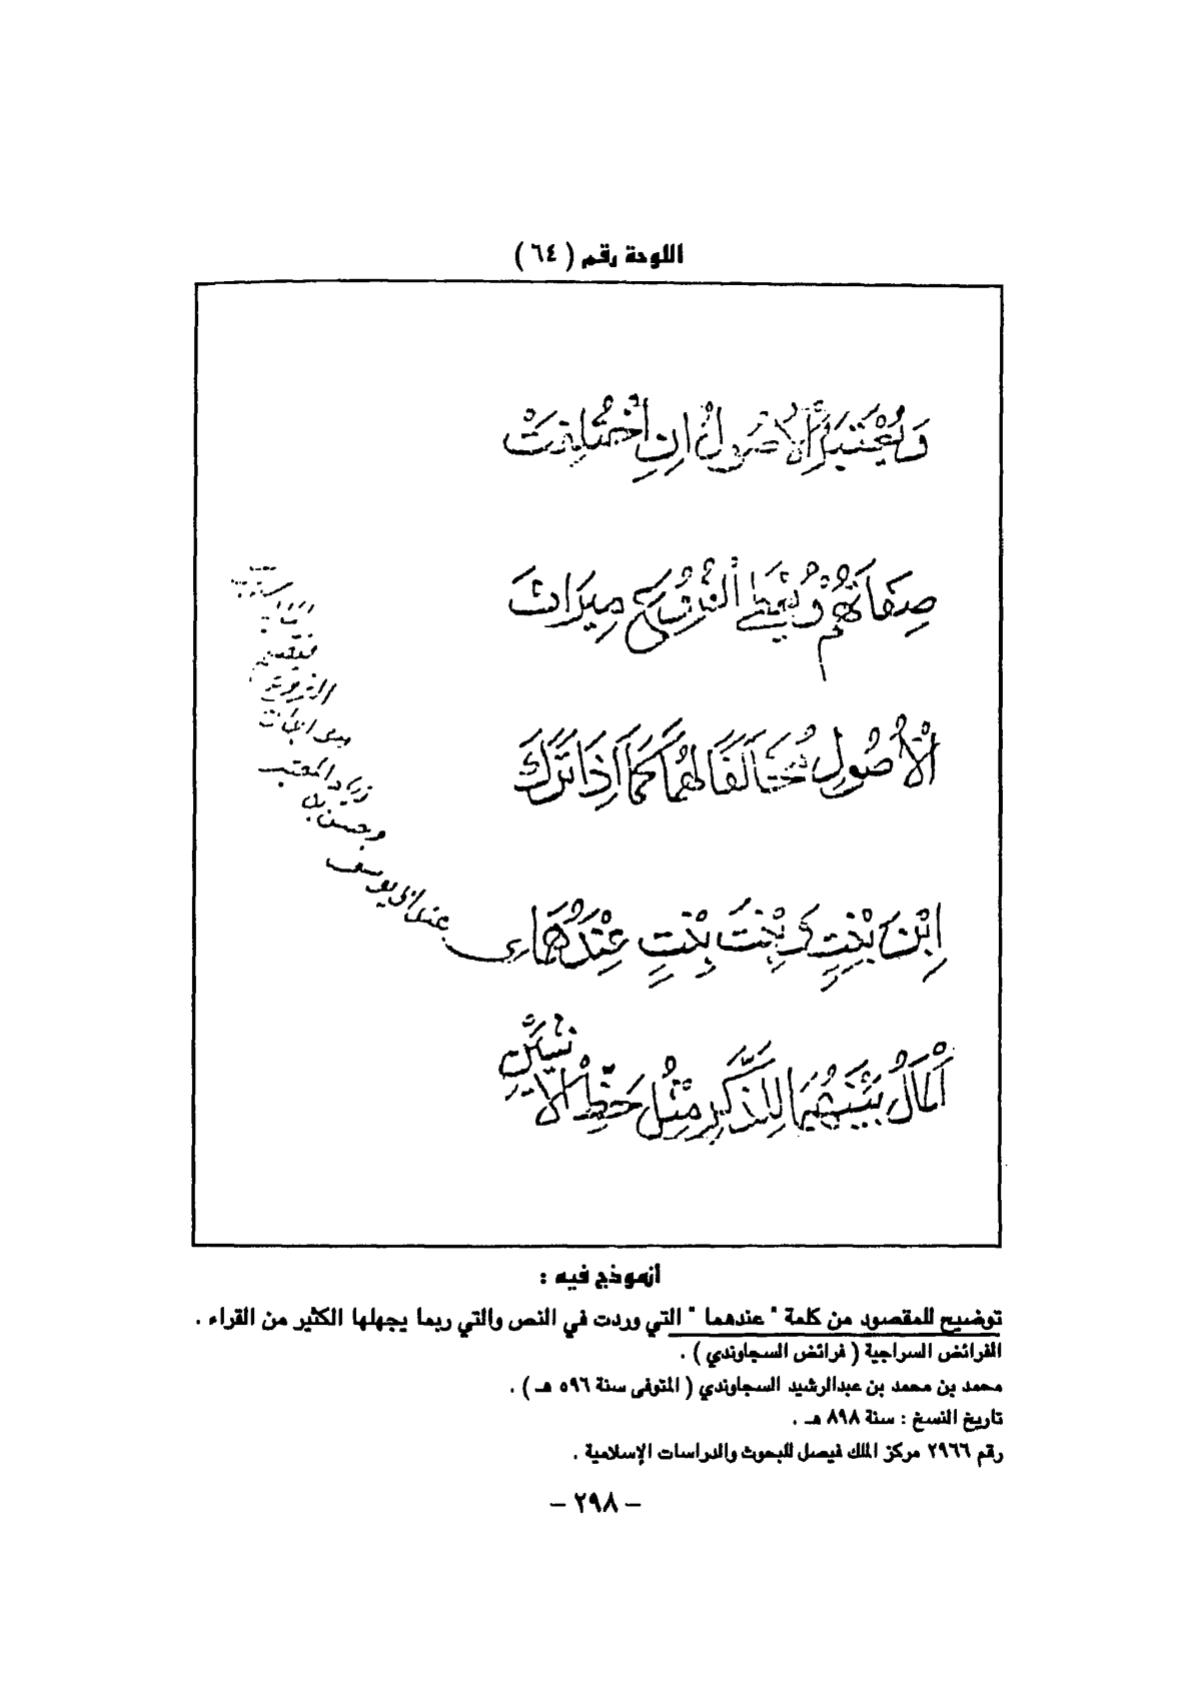 اللوحة رقم ( ٦٤ )
وَيُعْتَبَرُ الْأُصُولُ اِنِ اخْتَلَفَتْ
صِفَاتُهُمْ وَيُعْطَى الْفُرُوعُ مِيرَاثَ
الْأُصُولِ مُخَالَفًا لَهُمَا كَمَا اِذَا تَرَكَ
اِبْنَ بِنْتٍ وَبِنْتَ بِنْتٍ عِنْدَهُمَا
اَلْمَالُ بَيْنَهُمَا لِلذَّكَرِ مِثْلُ حَظِّ الْأُنْثَيَيْنِ
اى عند ابى يوسف
وحسن بن
زياد المعتبر
ابدان
الفروع
أنموذج فيه :
توضيح للمقصود من كلمة " عندهما " التي وردت في النص والتي ربما يجهلها الكثير من القراء .
الفرائض السراجية ( فرائض السجاوندي ) .
محمد بن محمد بن عبدالرشيد السجاوندي ( المتوفى سنة ٥٩٦ هـ ) .
تاريخ النسخ : سنة ٨٩٨ هـ .
رقم ٢٩٦٦ مركز الملك فيصل للبحوث والدراسات الإسلامية .
– ٢٩٨ –